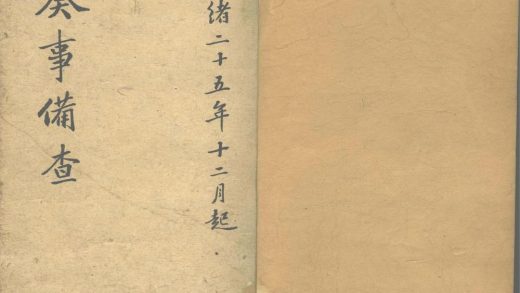 緒二十五年十二月起
癸事備查